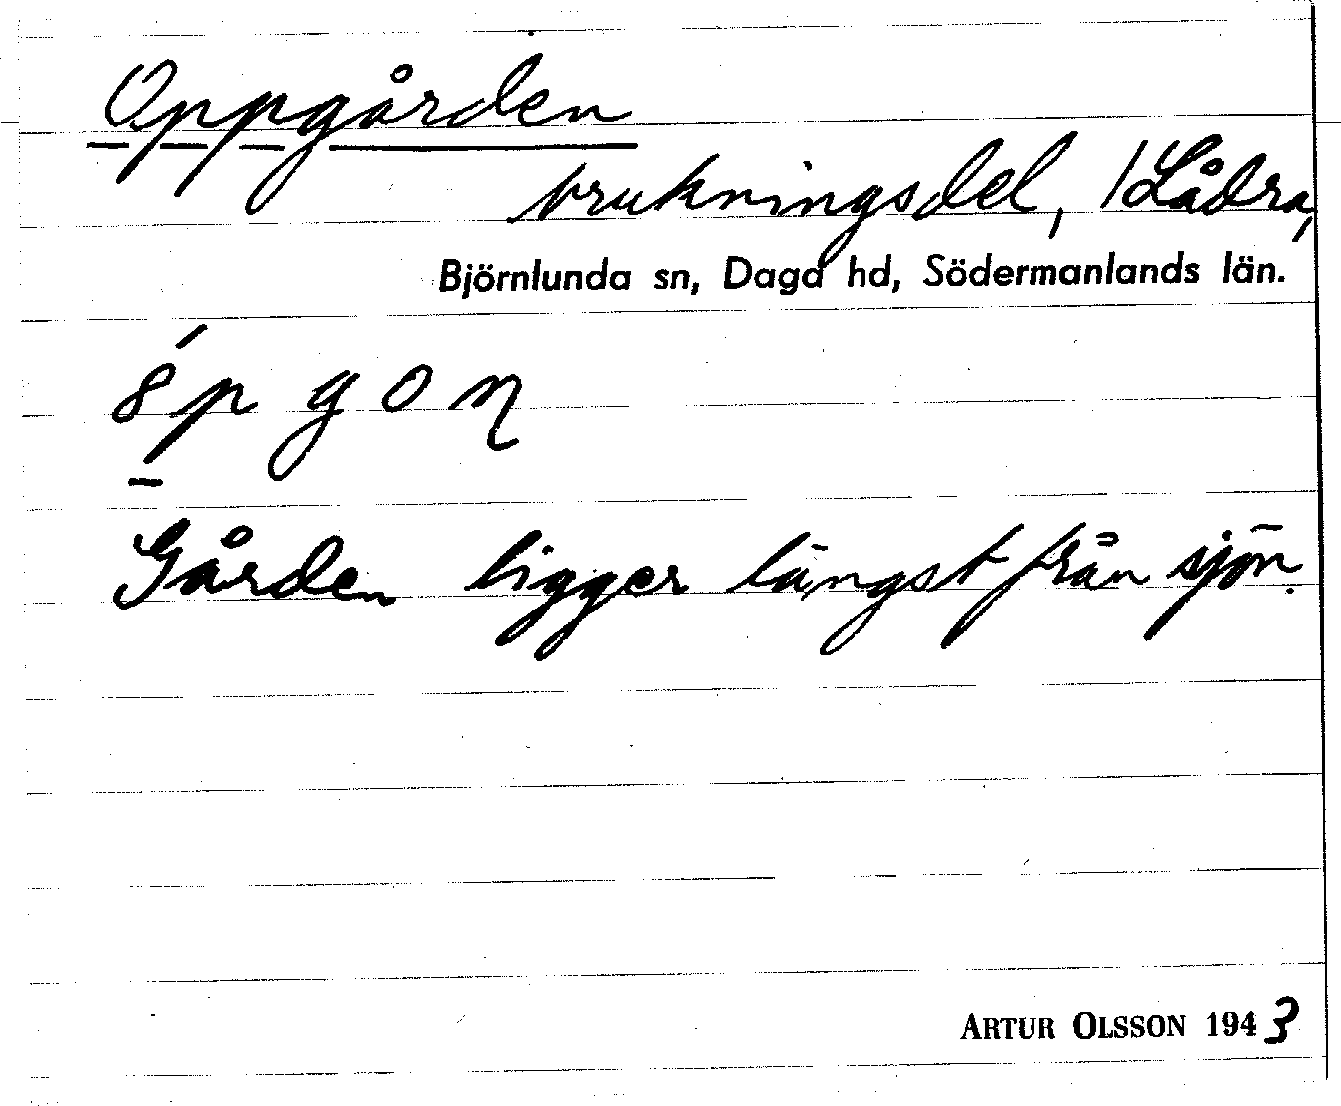 Oppgården
brukningsdel, 1 Lådra,
Björnlunda sn, Daga hd, Södermanlands län.
Gården ligger längst från sjön.
ARTUR OLSSON 1943